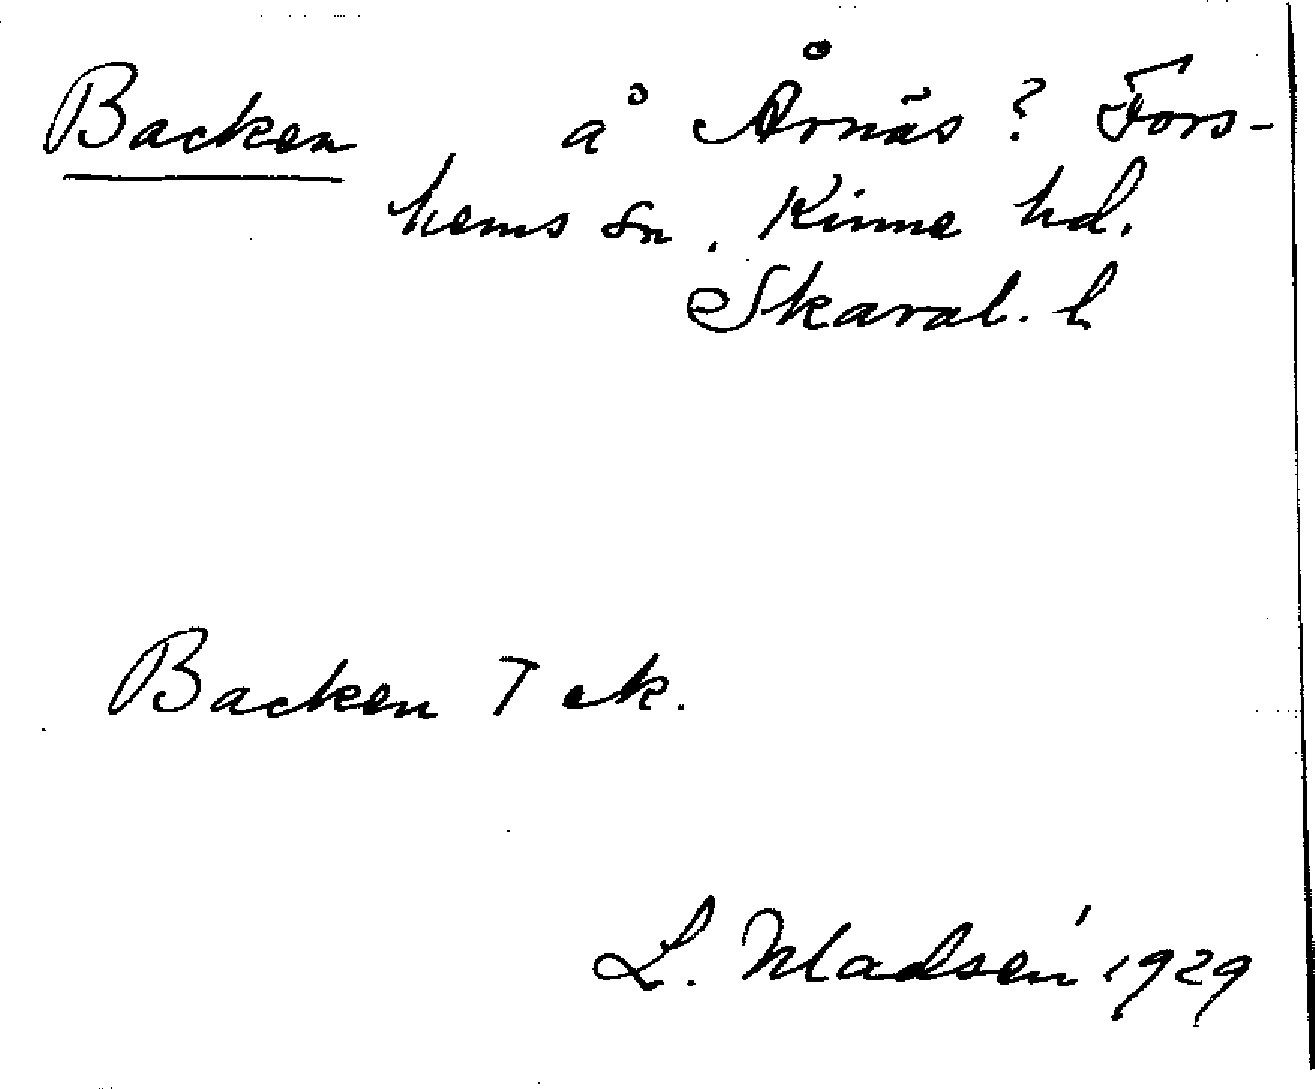 Backen å Årnäs? Fors-
hems sn. Kinne hd.
Skarab. l
Backen T ek.
L. Madsén 1929